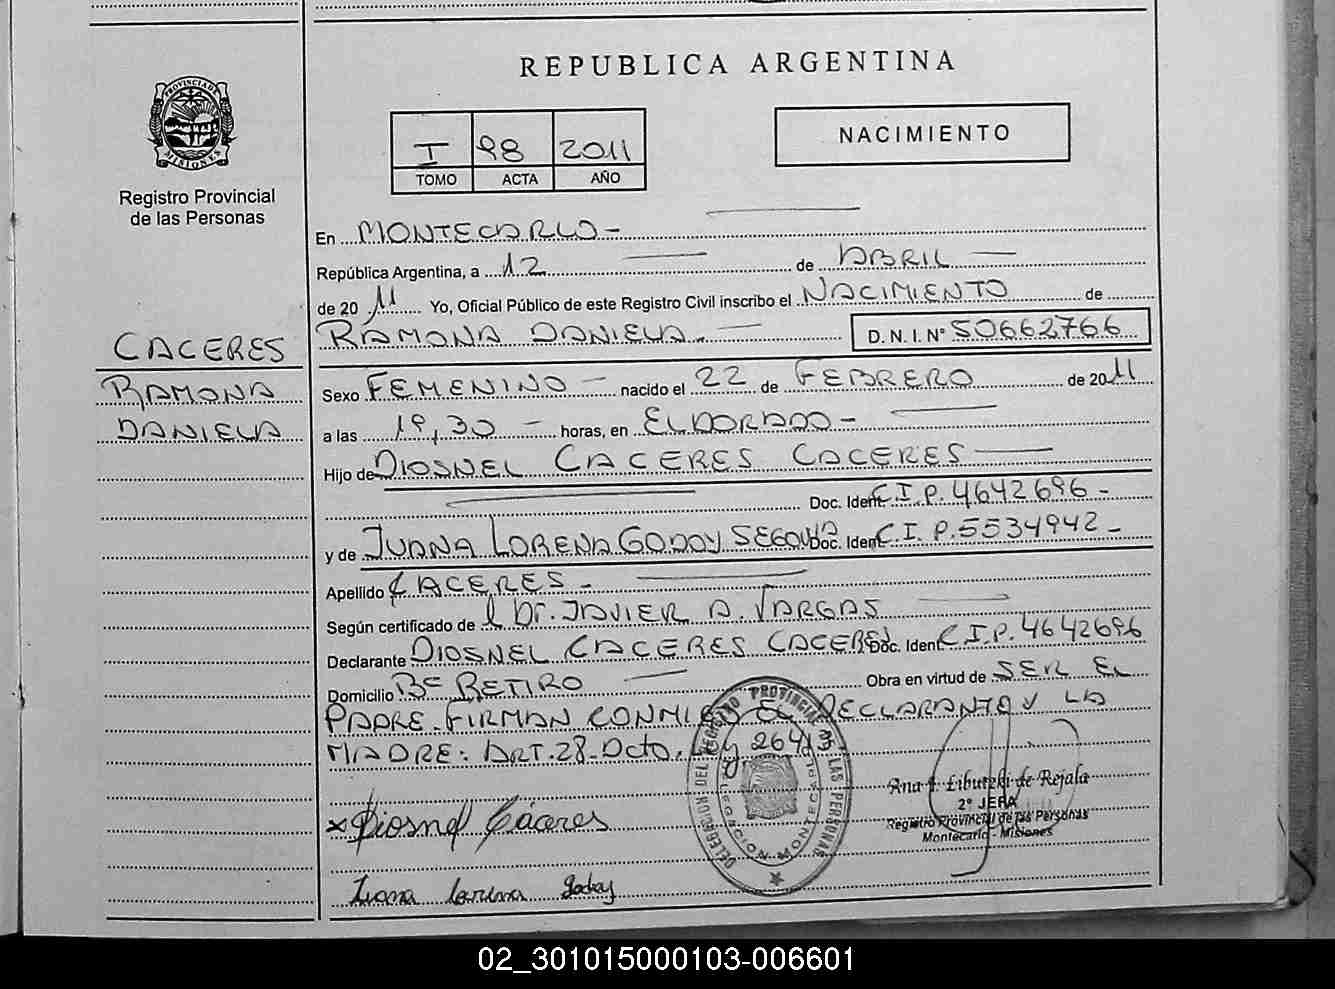 REPUBLICA ARGENTINA
PROVINCIA DE MISIONES
Registro Provincial
de las Personas
I 98 2011
TOMO ACTA AÑO
NACIMIENTO
En MONTECARLO-
República Argentina, a 12 de ABRIL
de 2011 Yo, Oficial Público de este Registro Civil inscribo el NACIMIENTO de
RAMONA DANIELA.- D.N.I. N° 50662766
CACERES
RAMONA
DANIELA
Sexo FEMENINO - nacido el 22 de FEBRERO de 2011
a las 19,30 - horas, en ELDORADO -
Hijo de DIOSNEL CACERES CACERES
Doc. Ident. C.I.P. 4642696 -
y de JUANA LORENA GODOY SEGOVIA Doc. Ident. C.I.P. 5534942 -
Apellido CACERES -
Según certificado de el Dr. JAVIER A. VARGAS
Declarante DIOSNEL CACERES CACERES Doc. Ident. C.I.P. 4642696
Domicilio B° RETIRO Obra en virtud de SER EL
PADRE. FIRMAN CONMIGO EL DECLARANTE Y LA
MADRE: ART. 28. Dcto. Ley 26413
DELEGACION DEL REGISTRO PROVINCIAL DE LAS PERSONAS
DELEGACION MONTECARLO
Ana I. Libutzki de Rejala
2° JEFA
Registro Provincial de las Personas
Montecarlo - Misiones
x Diosnel Cáceres
Juana Lorena Godoy
02_301015000103-006601